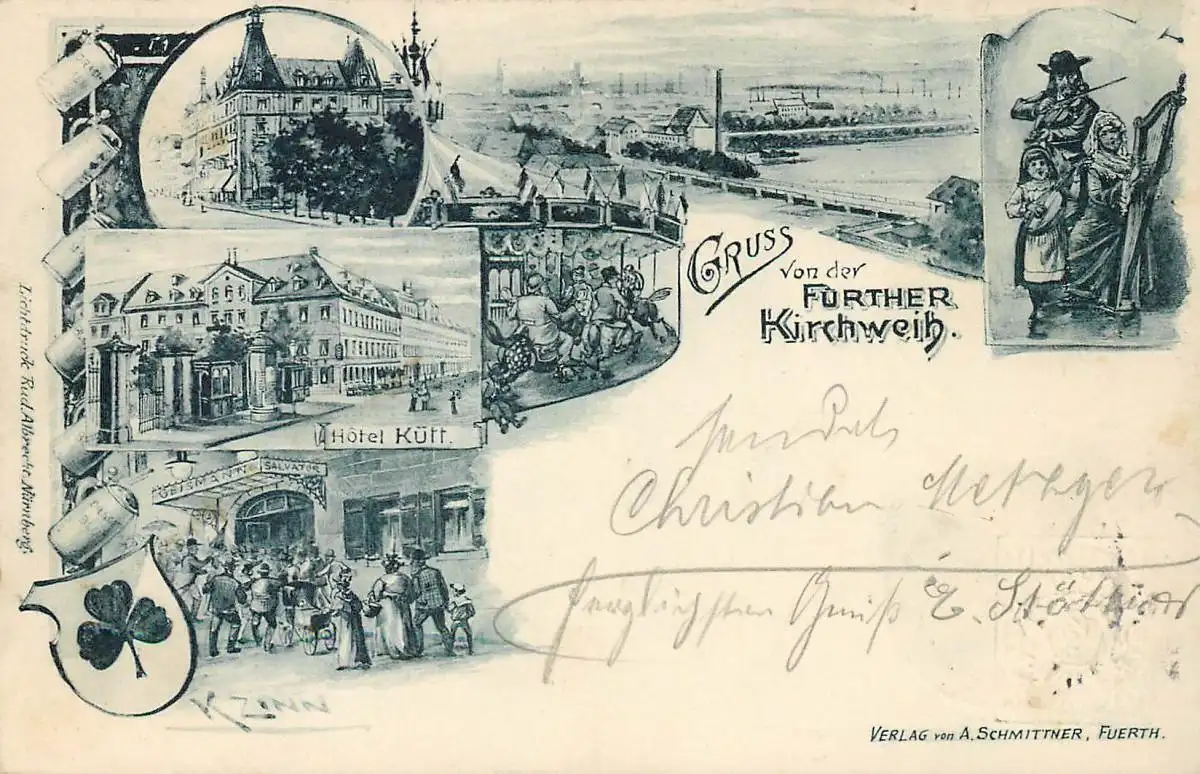 GRUSS
von der
FÜRTHER
Kirchweih.
Hôtel Kütt.
GEISMANN SALVATOR
sendet
Christian Metzger
herzlichsten Gruß
K ZINN
Lichtdruck Rud. Albrecht. Nürnberg.
VERLAG von A. SCHMITTNER, FUERTH.